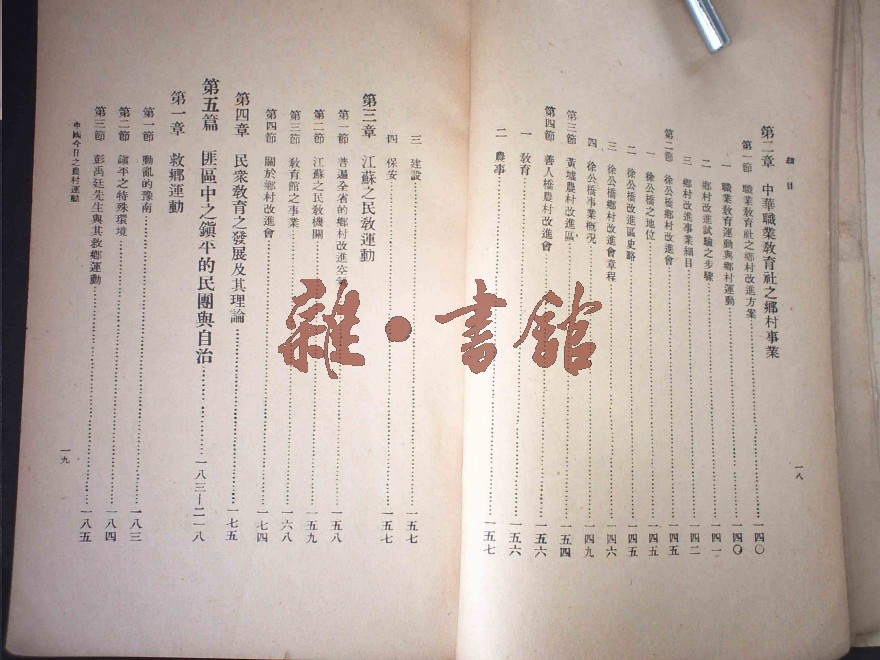 細目
第二章　中華職業教育社之鄉村事業……一四〇
第一節　職業教育社之鄉村改進方案……一四〇
一　職業教育運動與鄉村運動……一四〇
二　鄉村改進試驗之步驟……一四一
三　鄉村改進事業細目……一四二
第二節　徐公橋鄉村改進會……一四五
一　徐公橋之地位……一四五
二　徐公橋改進區史略……一四五
三　徐公橋鄉村改進會章程……一四六
四　徐公橋事業概況……一四九
第三節　黃墟農村改進區……一五四
第四節　善人橋農村改進會……一五六
一　教育……一五六
二　農事……一五七
一八
三　建設……一五七
四　保安……一五七
第三章　江蘇之民教運動
第一節　普遍全省的鄉村改進空氣……一五八
第二節　江蘇之民教機關……一五九
第三節　教育館之事業……一六八
第四節　關於鄉村改進會……一七四
第四章　民衆教育之發展及其理論……一七五
第五篇　匪區中之鎮平的民團與自治……一八三—二一八
第一章　救鄉運動
第一節　動亂的豫南……一八三
第二節　鎮平之特殊環境……一八四
第三節　彭禹廷先生與其救鄉運動……一八五
中國今日之農村運動
一九
雜·書館